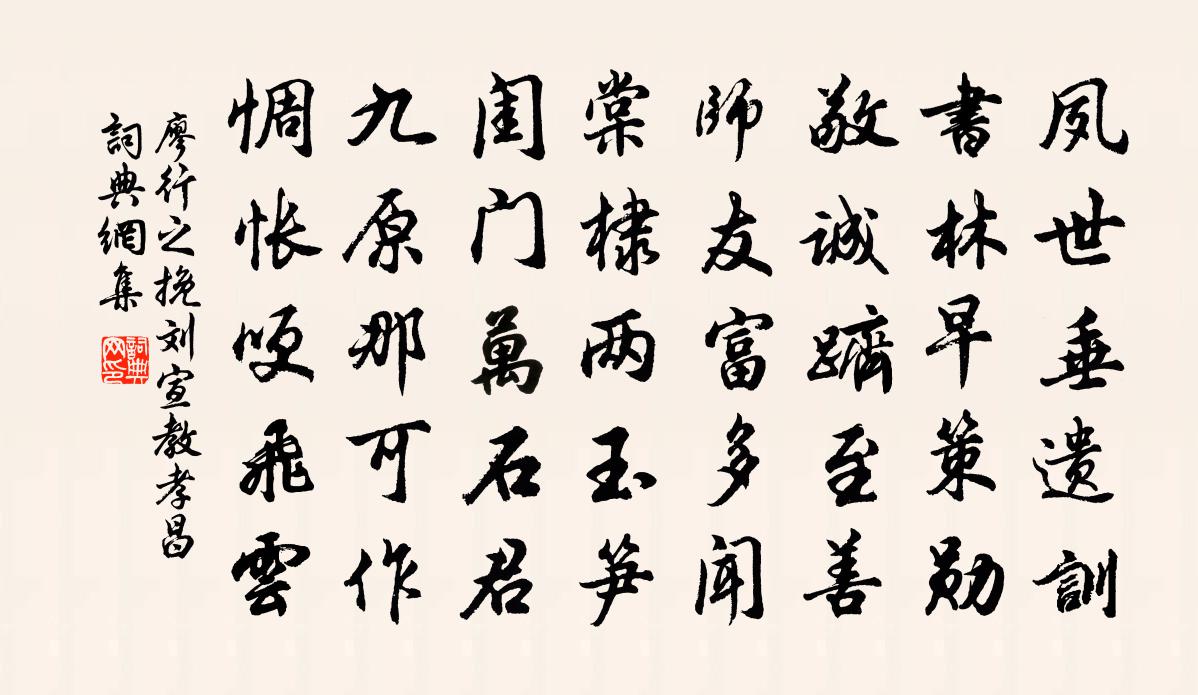 夙世垂遗訓
書林早策勋
敬诚躋至善
師友富多闻
棠棣两玉笋
闺门萬石君
九原那可作
惆怅哽飛雲
廖行之挽刘宣教孝昌
詞典網集
詞典网印